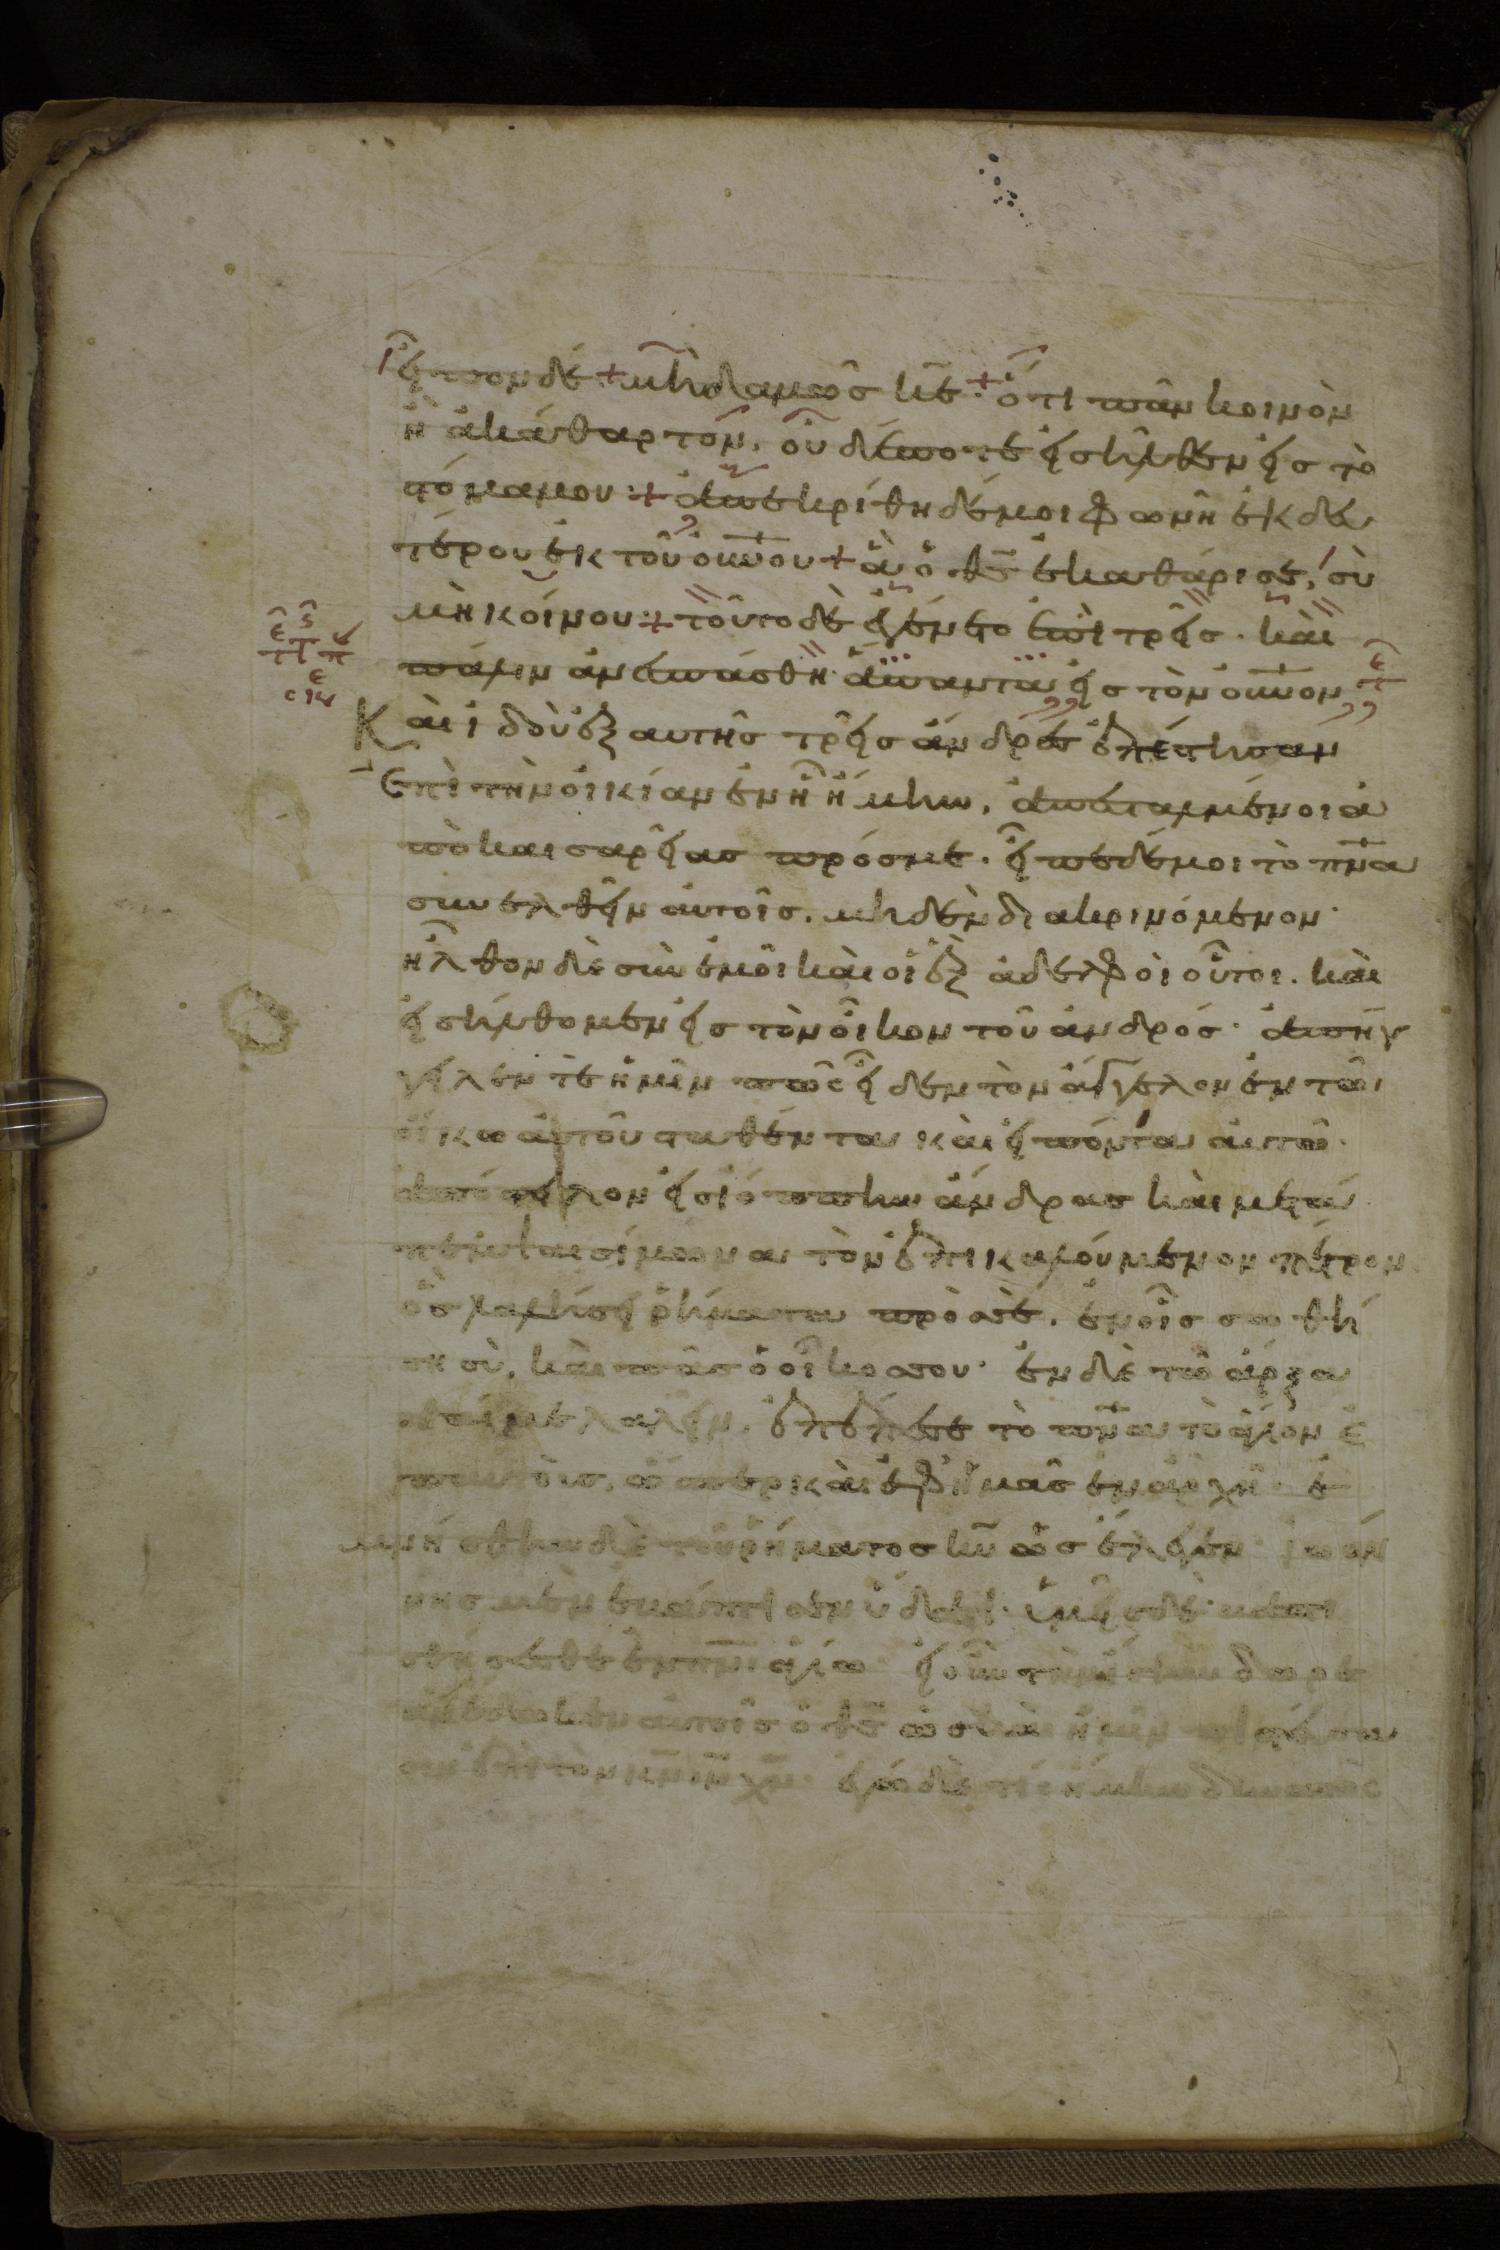 εἶπον δέ + μηδαμῶς κ̅ε̅· + ὅτι πᾶν κοινὸν
ἢ ἀκάθαρτον, οὐδέποτε εἰσῆλθεν εἰς τὸ
στόμα μου: + ἀπεκρίθη δέ μοι φωνὴ ἐκ δευ
τέρου ἐκ τοῦ ο̅υ̅ν̅ο̅υ + ἃ ὁ θ̅ς̅ ἐκαθάρισε, σὺ
μὴ κοίνου: + τοῦτο δὲ ἐγένετο ἐπὶ τρεῖς· καὶ
πάλιν ἀνεσπάσθη ἅπαντα εἰς τὸν ο̅υ̅ν̅ο̅ν
Καὶ ἰδοὺ ἐξαυτῆς τρεῖς ἄνδρες ἐπέστησαν
ἐπὶ τὴν οἰκίαν ἐν ἧ ἤμην, ἀπεσταλμένοι ἀ
πὸ καισαρείας πρός με. εἶπε δέ μοι τὸ π̅ν̅α̅
συνελθεῖν αὐτοῖς, μηδὲν διακρινόμενον·
ἦλθον δὲ σὺν ἐμοὶ καὶ οἱ ἓξ ἀδελφοὶ οὗτοι. καὶ
εἰσήλθομεν εἰς τὸν οἶκον τοῦ ἀνδρός· ἀπήγ
γειλέν τε ἡμῖν πῶς εἶδεν τὸν ἄγγελον ἐν τῶι
οἴκω αὐτοῦ σταθέντα καὶ εἰπόντα αὐτῶ·
ἀπόστειλον εἰς ἰόππην ἄνδρας καὶ μετά
πεμψαι σίμωνα τὸν ἐπικαλούμενον πέτρον
ὃς λαλήσει ῥήματα πρὸς σέ, ἐν οἷς σωθή
ση σὺ, καὶ πᾶς ὁ οἶκος σου· ἐν δὲ τῶ ἄρξα
σθαί με λαλεῖν, ἐπέπεσε τὸ π̅ν̅α̅ τὸ ἅγιον ἐ
π' αὐτοὺς, ὥσπερ καὶ ἐφ' ἡμᾶς ἐν ἀρχῆ· ἐ
μνήσθην δὲ τοῦ ῥήματος κ̅υ̅ ὡς ἔλεγεν ἰωάν
νης μὲν ἐβάπτισεν ὕδατι· ὑμεῖς δὲ βαπτι
σθήσεσθε ἐν π̅ν̅ι̅ ἁγίω εἰ οὖν τὴν ἴσην δωρε
ὰν ἔδωκεν αὐτοῖς ὁ θ̅ς̅ ὡς καὶ ἡμῖν πιστεύσα
σιν ἐπὶ τὸν κ̅ν̅ ι̅ν̅ χ̅ν̅· ἐγὼ δὲ τίς ἤμην δυνατὸς